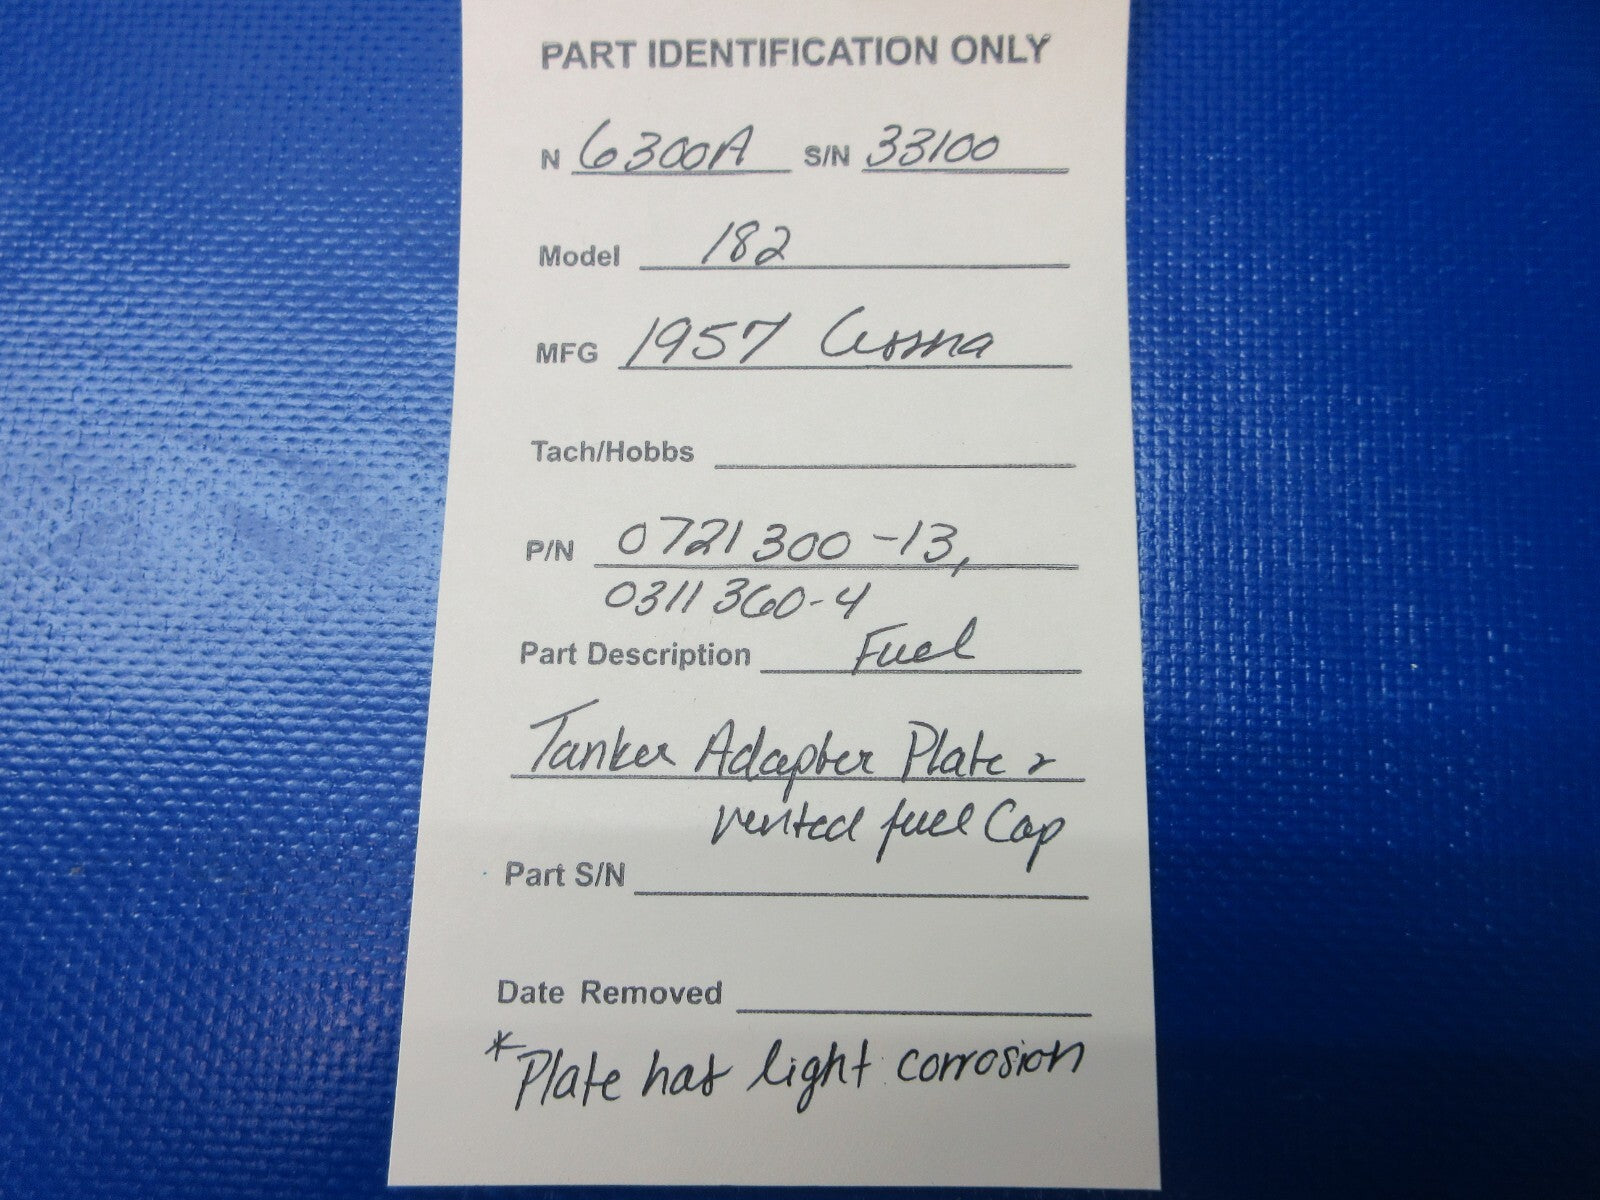 PART IDENTIFICATION ONLY
N 6300A S/N 33100
Model 182
MFG 1957 Cessna
Tach/Hobbs
P/N 0721300-13,
0311360-4
Part Description Fuel
Tanker Adapter Plate &
vented fuel Cap
Part S/N
Date Removed
*Plate has light corrosion